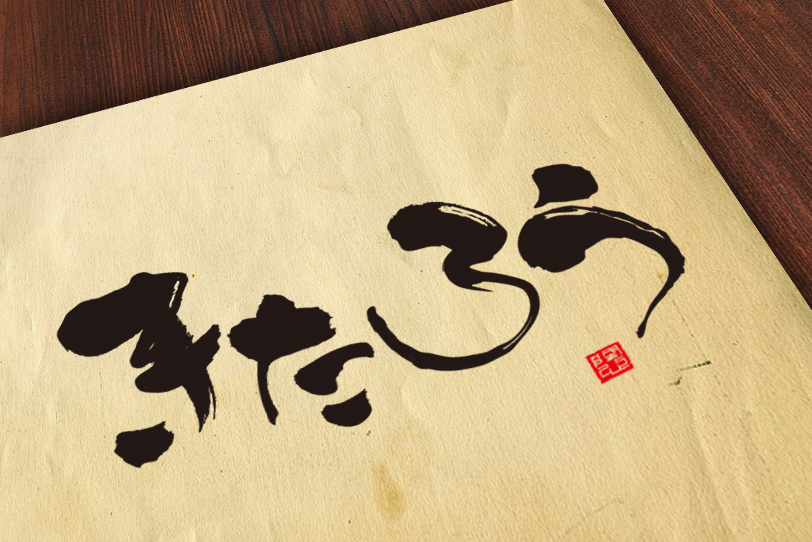 きたろう